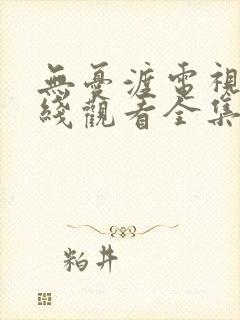 無憂渡電視
綫觀看全集
粕井